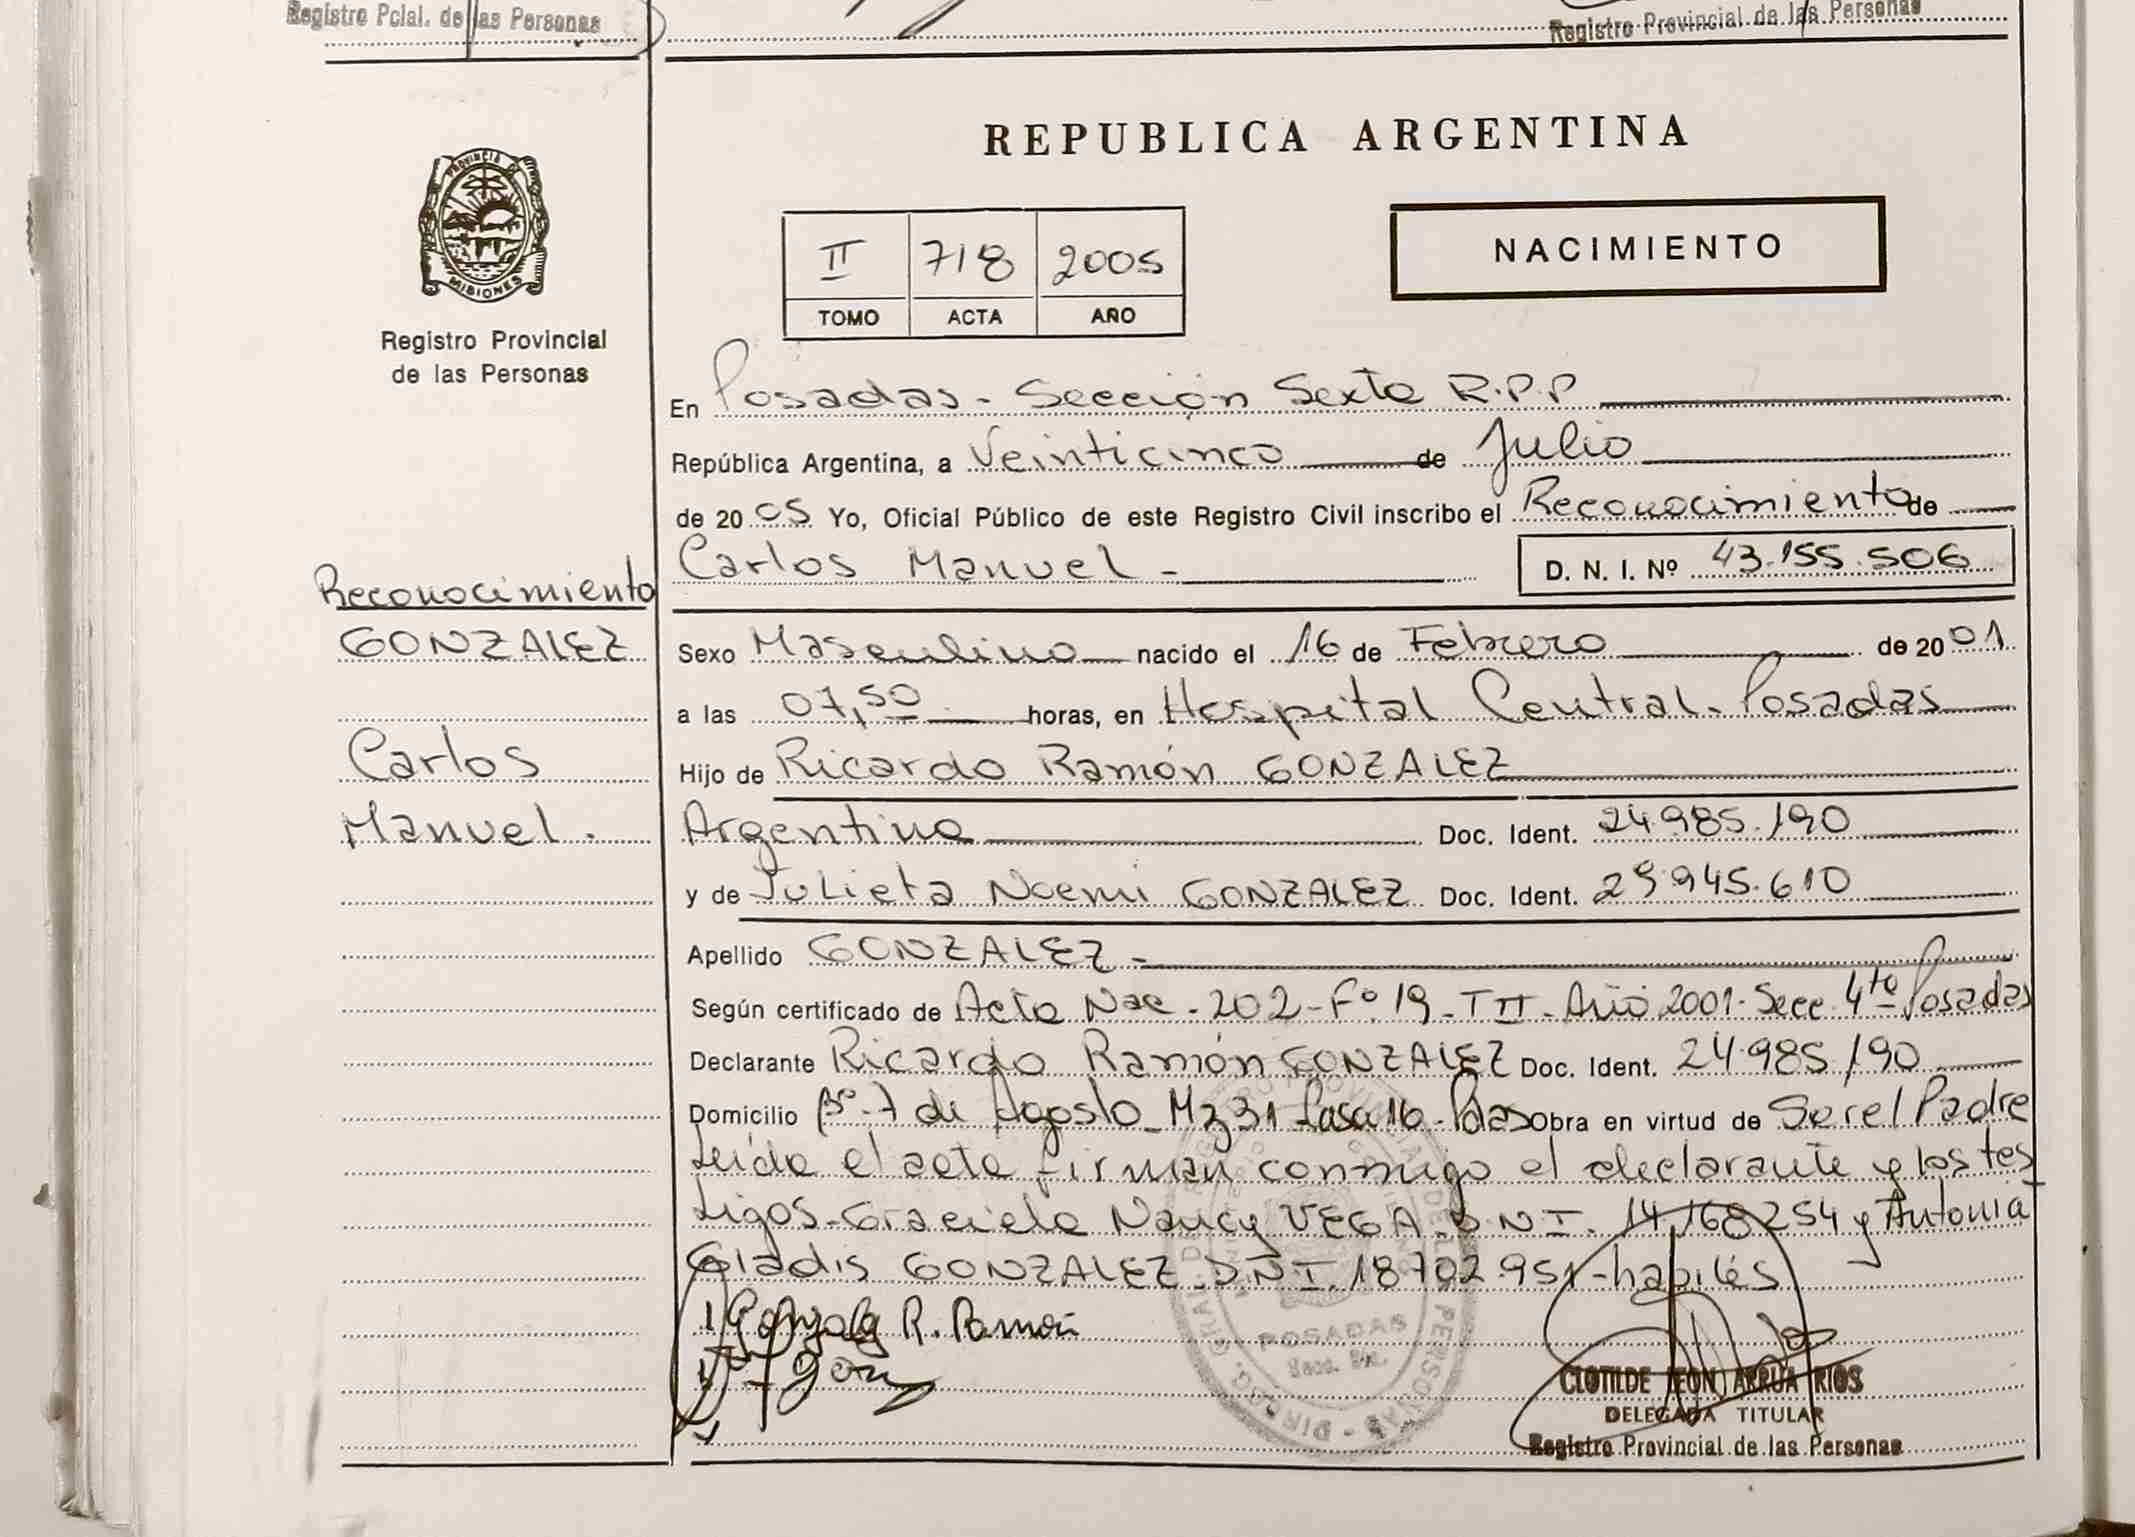 Registro Pcial. de las Personas
Registro Provincial de las Personas
REPUBLICA ARGENTINA
PROVINCIA DE
MISIONES
Registro Provincial
de las Personas
II 718 2005
TOMO ACTA AÑO
NACIMIENTO
En Posadas - Sección Sexta R.P.P
República Argentina, a Veinticinco de Julio
de 2005 Yo, Oficial Público de este Registro Civil inscribo el Reconocimiento de
Carlos Manuel - D. N. I. Nº 43.155.506
Reconocimiento
GONZALEZ
Carlos
Manuel.
Sexo Masculino nacido el 16 de Febrero de 2001
a las 07,50 horas, en Hospital Central - Posadas
Hijo de Ricardo Ramón GONZALEZ
Argentina Doc. Ident. 24.985.190
y de Julieta Noemi GONZALEZ Doc. Ident. 25.945.610
Apellido GONZALEZ -
Según certificado de Acta Nac - 202 - Fº 19 - T II - Año 2001 - Secc. 4ta Posadas
Declarante Ricardo Ramón GONZALEZ Doc. Ident. 24.985.190
Domicilio Bº - 7 de Agosto - Mz 31 Casa 16 - Pdas Obra en virtud de Ser el Padre
Leída el acta firman conmigo el declarante y los tes
tigos - Graciela Nancy VEGA. D.N.I. 14.168254 y Antonia
Gladis GONZALEZ D.N.I. 18702.951 - habiles
R. Ramón
POSADAS
CLOTILDE LEONI ARRUA RIOS
DELEGADA TITULAR
Registro Provincial de las Personas